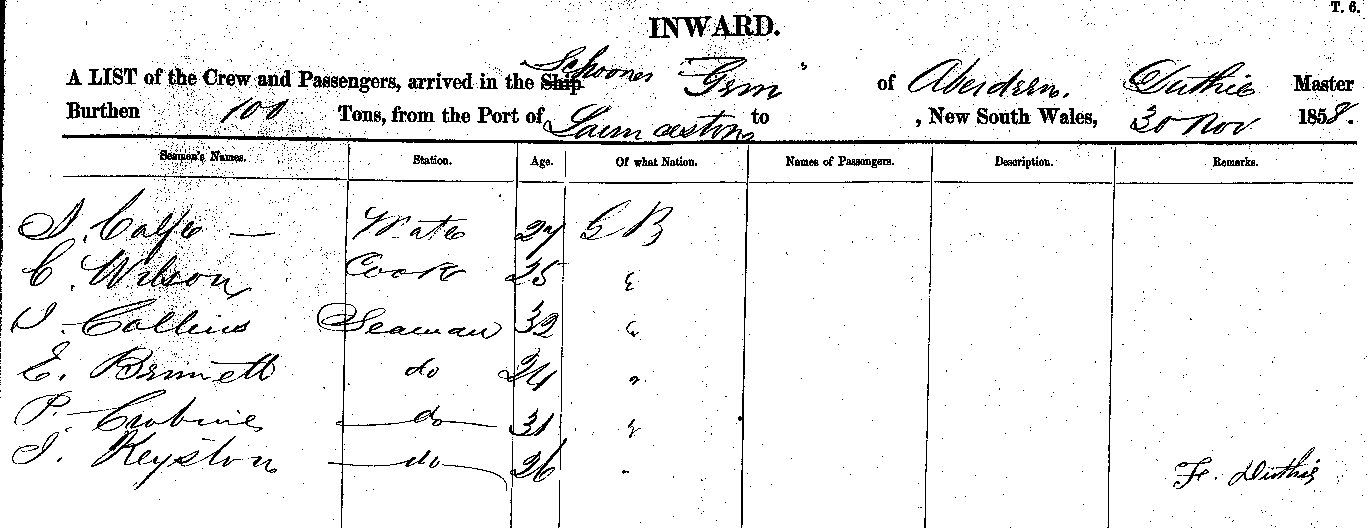 T. 6.
INWARD.
A LIST of the Crew and Passengers, arrived in the Ship Schooner "Gem" of Aberdeen. Duthie Master
Burthen 100 Tons, from the Port of Launceston to , New South Wales, 30 Nov 1858.
Seamen's Names. Station. Age. Of what Nation. Names of Passengers. Description. Remarks.
Mate 27 G B
C. Wilson Cook 25 "
J. Collins Seaman 32 "
E. Bennett do 24 "
P. do 31 "
J. Keyston do 26 "
F. Duthie